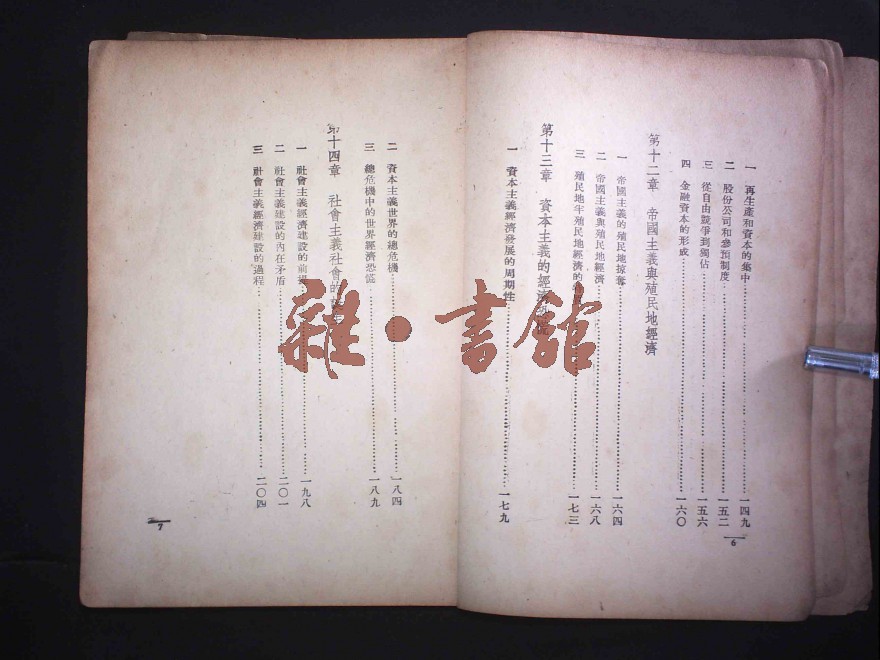 一 再生產和資本的集中……一四九
二 股份公司和參預制度……一五二
三 從自由競爭到獨佔……一五六
四 金融資本的形成……一六〇
第十二章 帝國主義與殖民地經濟
一 帝國主義的殖民地掠奪……一六四
二 帝國主義與殖民地經濟……一六八
三 殖民地半殖民地經濟的……一七三
第十三章 資本主義的經濟恐慌
一 資本主義經濟發展的周期性……一七九
6
二 資本主義世界的總危機……一八四
三 總危機中的世界經濟恐慌……一八九
第十四章 社會主義社會的
一 社會主義經濟建設的前提……一九八
二 社會主義建設的內在矛盾……二〇一
三 社會主義經濟建設的過程……二〇四
7
雜·書館